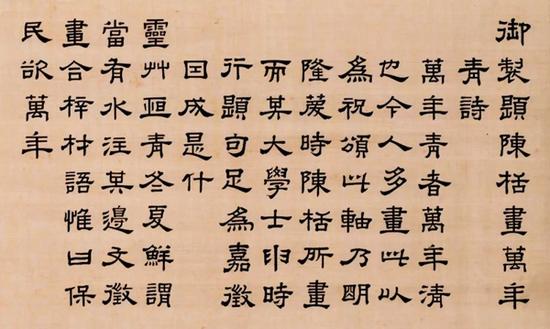 御製題陳栝畫萬年
青詩
萬年青者萬年清
也今人多畫此以
為祝頌此軸乃朙
隆慶時陳栝所畫
而其大學士申時
行題句足為嘉徵
囙成是什
靈艸恒青冬夏鮮謂
當有水注其邊文徵
畫合梓材語惟曰保
民欲萬年